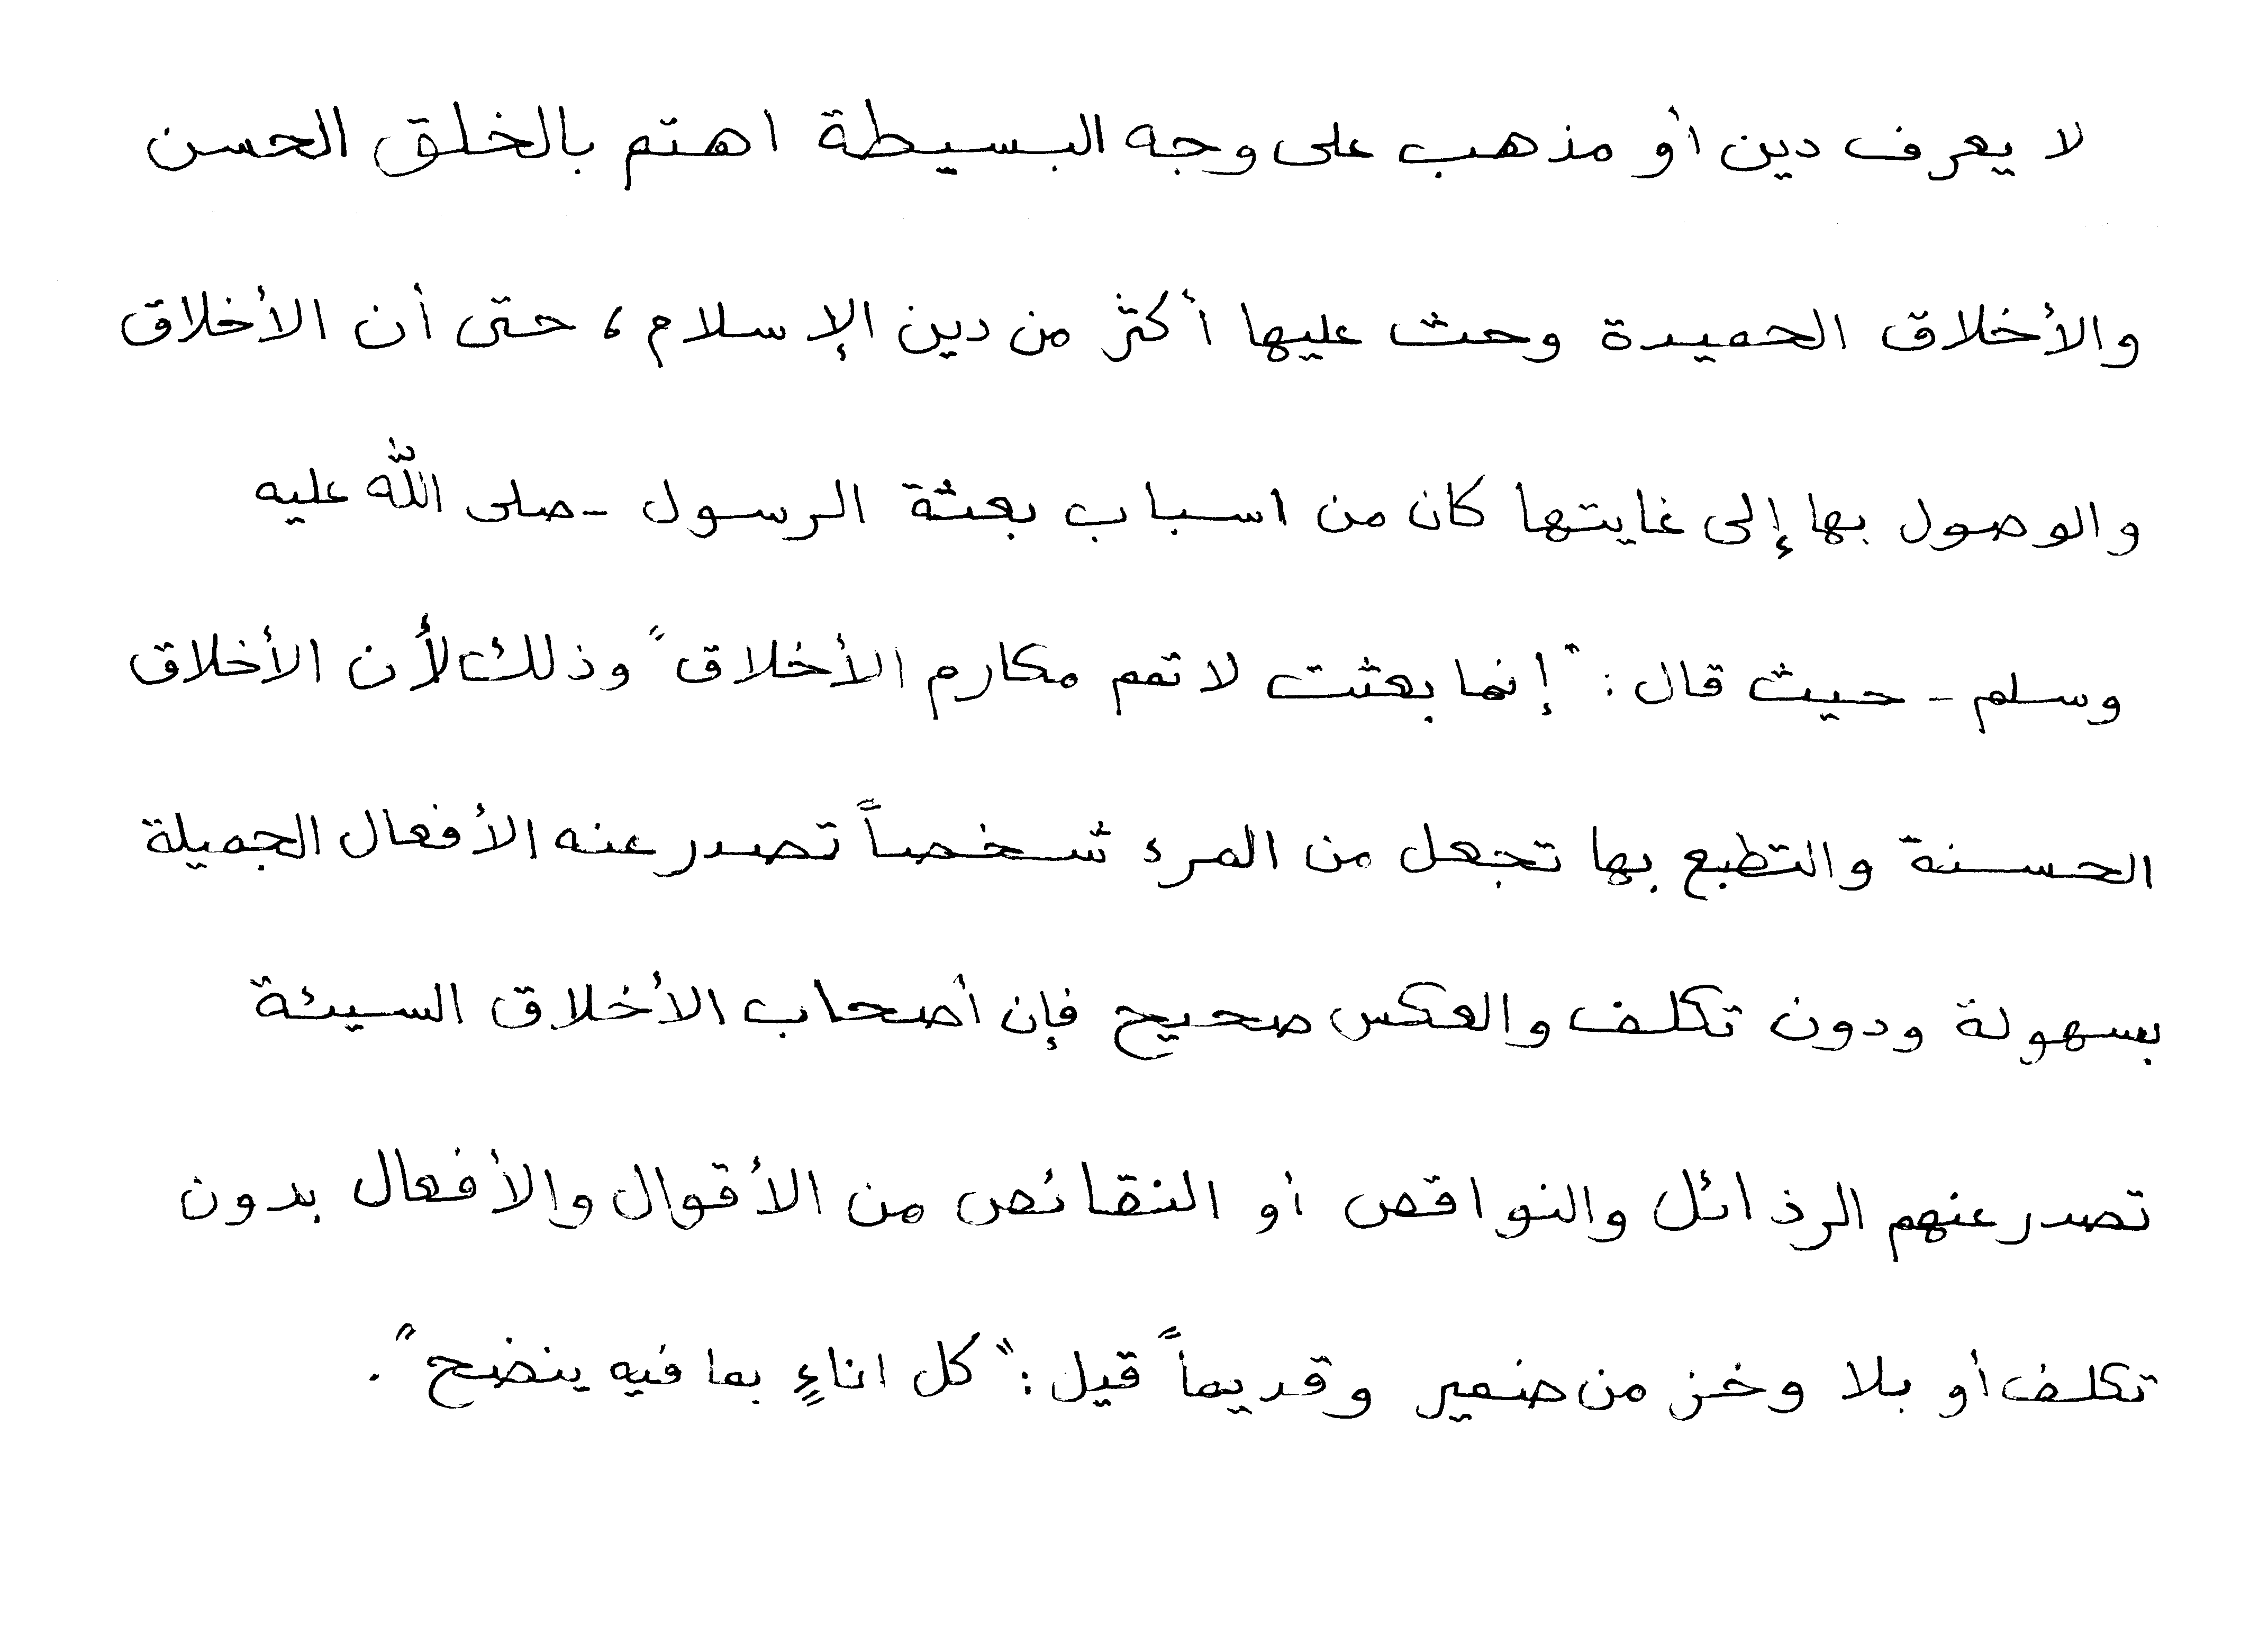 لا يعرف دين أو مذهب على وجه البسيطة اهتم بالخلق الحسن
والأخلاق الحميدة وحث عليها أكثر من دين الإسلام، حتى أن الأخلاق
والوصول بها إلى غايتها كان من اسباب بعثة الرسول -صلى الله عليه
وسلم- حيث قال: "إنما بعثت لاتمم مكارم الأخلاق" وذلك لأن الأخلاق
الحسنة والتطبع بها تجعل من المرء شخصاً تصدر عنه الأفعال الجميلة
بسهولة ودون تكلف والعكس صحيح فإن أصحاب الأخلاق السيئة
تصدر عنهم الرذائل والنواقص أو النقائص من الأقوال والأفعال بدون
تكلف أو بلا وخز من ضمير وقديماً قيل: "كل اناءٍ بما فيه ينضح".